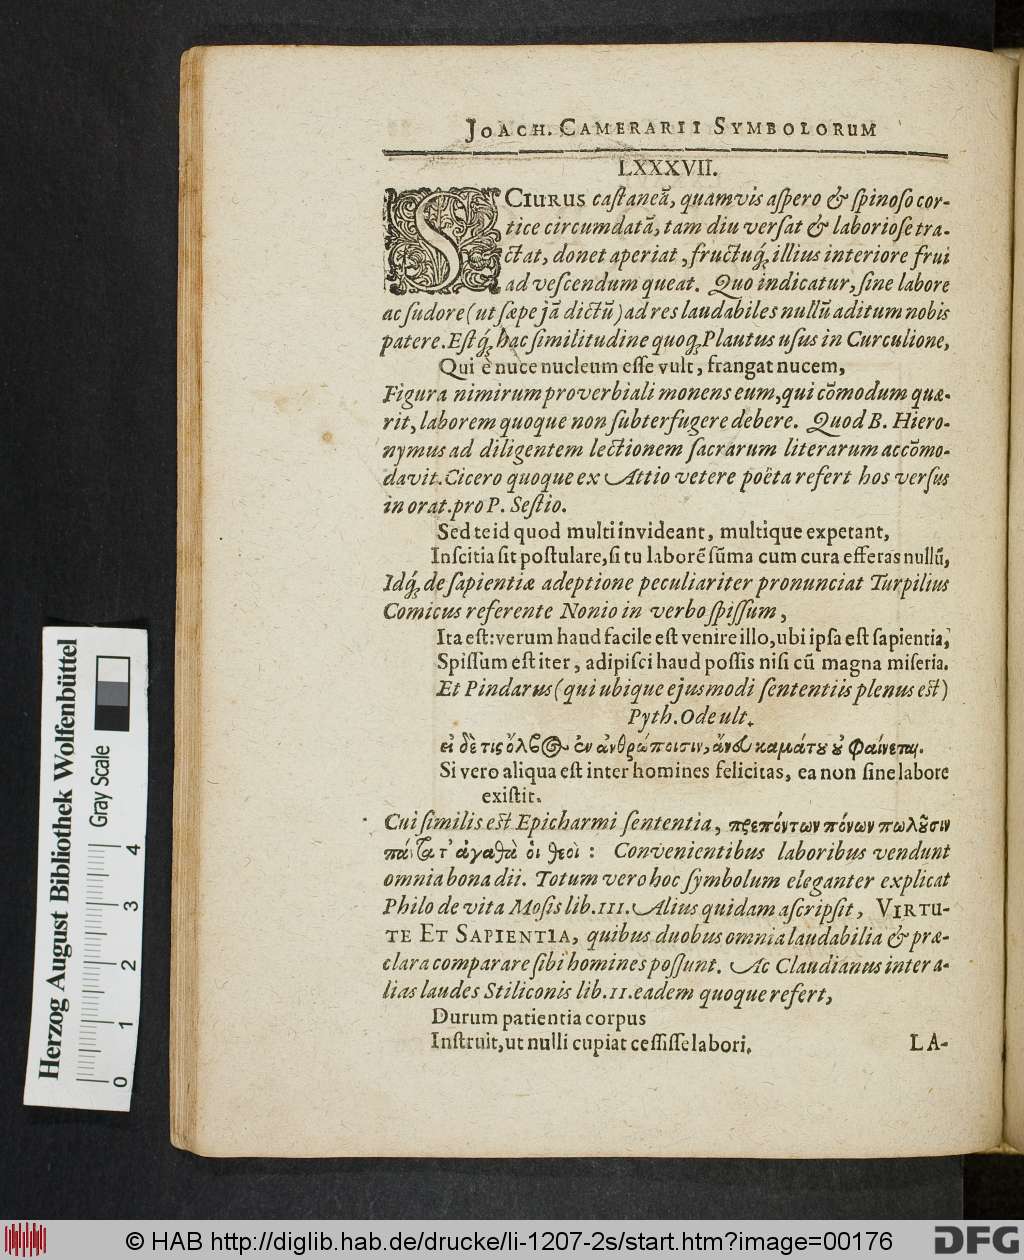 JOACH. CAMERARII SYMBOLORUM
LXXXVII.
SCIURUS castaneã, quamvis aspero & spinoso cor-
tice circumdatã, tam diu versat & laboriose tra-
ctat, donet aperiat, fructuq́; illius interiore frui
ad vescendum queat. Quo indicatur, sine labore
ac sudore (ut sæpe jã dictũ) ad res laudabiles nullũ aditum nobis
patere. Estq́; hac similitudine quoq; Plautus usus in Curculione,
Qui è nuce nucleum esse vult, frangat nucem,
Figura nimirum proverbiali monens eum, qui cõmodum quæ-
rit, laborem quoque non subterfugere debere. Quod B. Hiero-
nymus ad diligentem lectionem sacrarum literarum accõmo-
davit. Cicero quoque ex Attio vetere poëta refert hos versus
in orat. pro P. Sestio.
Sed te id quod multi invideant, multique expetant,
Inscitia sit postulare, si tu laborẽ sũma cum cura efferas nullũ,
Idq́; de sapientiæ adeptione peculiariter pronunciat Turpilius
Comicus referente Nonio in verbo spissum,
Ita est: verum haud facile est venire illo, ubi ipsa est sapientia,
Spissum est iter, adipisci haud possis nisi cũ magna miseria.
Et Pindarus (qui ubique ejusmodi sententiis plenus est)
Pyth. Ode ult.
εἰ δὲ τις ὄλβος ἐν ἀνθρώποισιν, ἄνευ καμάτου οὐ φαίνεται.
Si vero aliqua est inter homines felicitas, ea non sine labore
existit.
Cui similis est Epicharmi sententia, πρεπόντων πόνων πωλοῦσιν
πάντα τ' ἀγαθὰ οἱ θεοὶ: Convenientibus laboribus vendunt
omnia bona dii. Totum vero hoc symbolum eleganter explicat
Philo de vita Mosis lib. III. Alius quidam ascripsit, VIRTU-
TE ET SAPIENTIA, quibus duobus omnia laudabilia & præ-
clara comparare sibi homines possunt. Ac Claudianus inter a-
lias laudes Stiliconis lib. II. eadem quoque refert,
Durum patientia corpus
Instruit, ut nulli cupiat cessisse labori.
LA-
Herzog August Bibliothek Wolfenbüttel
Gray Scale
0 1 2 3 4
© HAB http://diglib.hab.de/drucke/li-1207-2s/start.htm?image=00176
DFG